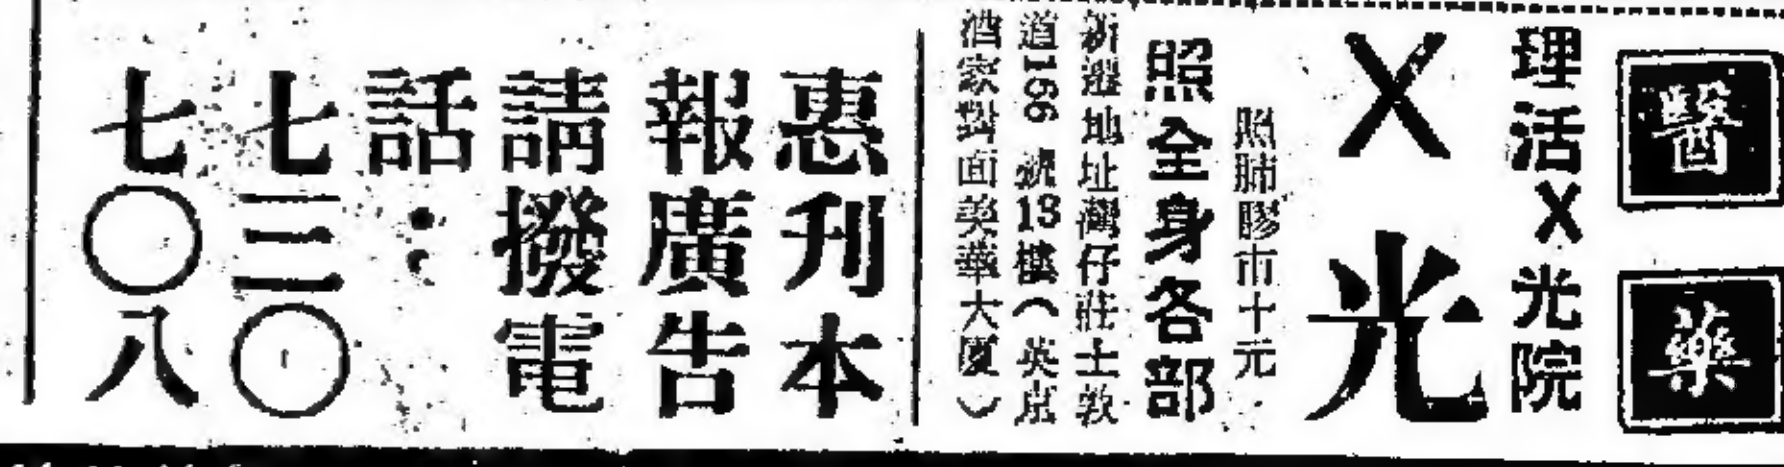 醫藥
理活X光院
X光
照肺膠市十元
照全身各部
新遷地址灣仔莊士敦
道166號13樓（英京
酒家對面美華大廈）
惠刊本
報廣告
請撥電
話：
七三〇
七〇八